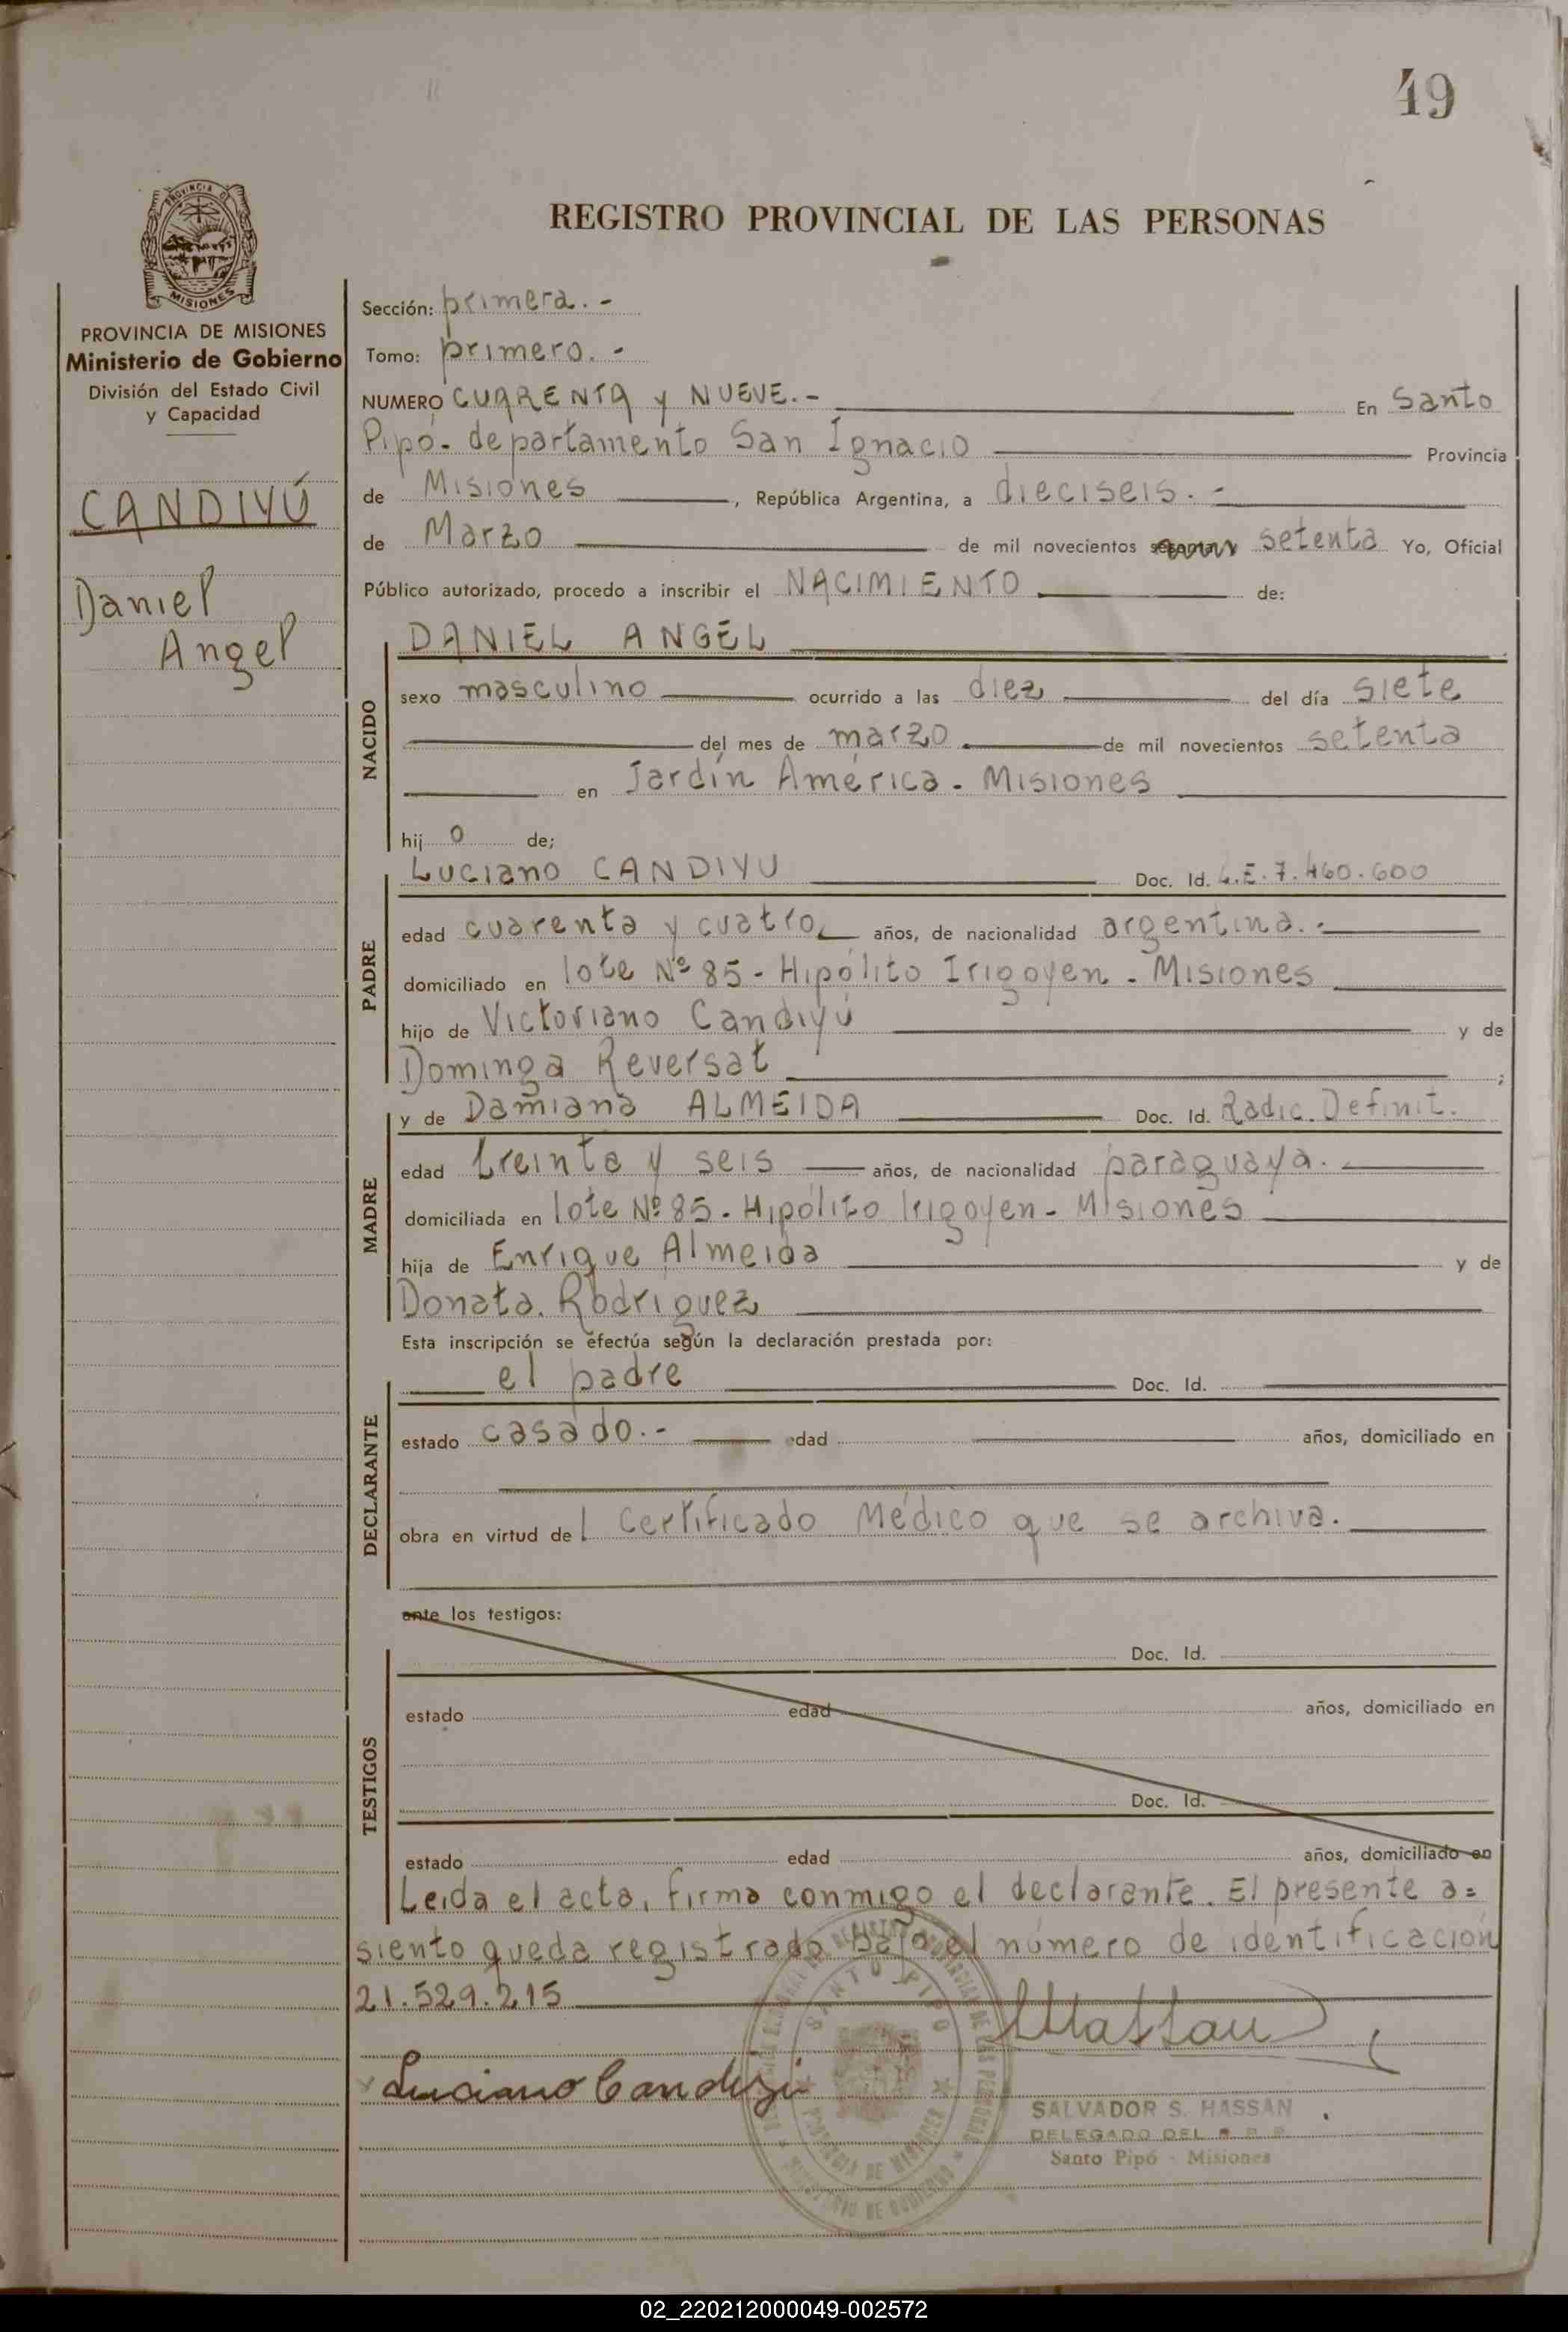 49
REGISTRO PROVINCIAL DE LAS PERSONAS
PROVINCIA DE
MISIONES
PROVINCIA DE MISIONES
Ministerio de Gobierno
División del Estado Civil
y Capacidad
CANDIYÚ
Daniel
Angel
Sección: primera.-
Tomo: primero.-
NUMERO CUARENTA y NUEVE.- En Santo
Pipó- departamento San Ignacio Provincia
de Misiones, República Argentina, a dieciseis.-
de Marzo de mil novecientos setenta Yo, Oficial
Público autorizado, procedo a inscribir el NACIMIENTO de:
NACIDO
DANIEL ANGEL
sexo masculino ocurrido a las diez del día siete
del mes de marzo de mil novecientos setenta
en Jardín América - Misiones
hijo de;
PADRE
Luciano CANDIYU Doc. Id. L.E. 7.460.600
edad cuarenta y cuatro años, de nacionalidad argentina.-
domiciliado en lote Nº 85 - Hipólito Irigoyen - Misiones
hijo de Victoriano Candiyú y de
Dominga Reversat ;
MADRE
y de Damiana ALMEIDA Doc. Id. Radic. Definit.
edad treinta y seis años, de nacionalidad paraguaya.-
domiciliada en lote Nº 85 - Hipólito Irigoyen - Misiones
hija de Enrique Almeida y de
Donata Rodriguez
Esta inscripción se efectúa según la declaración prestada por:
DECLARANTE
el padre Doc. Id.
estado casado.- edad años, domiciliado en
obra en virtud del Certificado Médico que se archiva.
ante los testigos:
TESTIGOS
Doc. Id.
estado edad años, domiciliado en
Doc. Id.
estado edad años, domiciliado en
Leida el acta, firma conmigo el declarante. El presente a=
siento queda registrado bajo el número de identificación
21.529.215
Luciano Candiyu
SANTO PIPO
PROVINCIA DE MISIONES
MINISTERIO DE GOBIERNO
SALVADOR S. HASSAN
DELEGADO DEL
Santo Pipó - Misiones
02_220212000049-002572